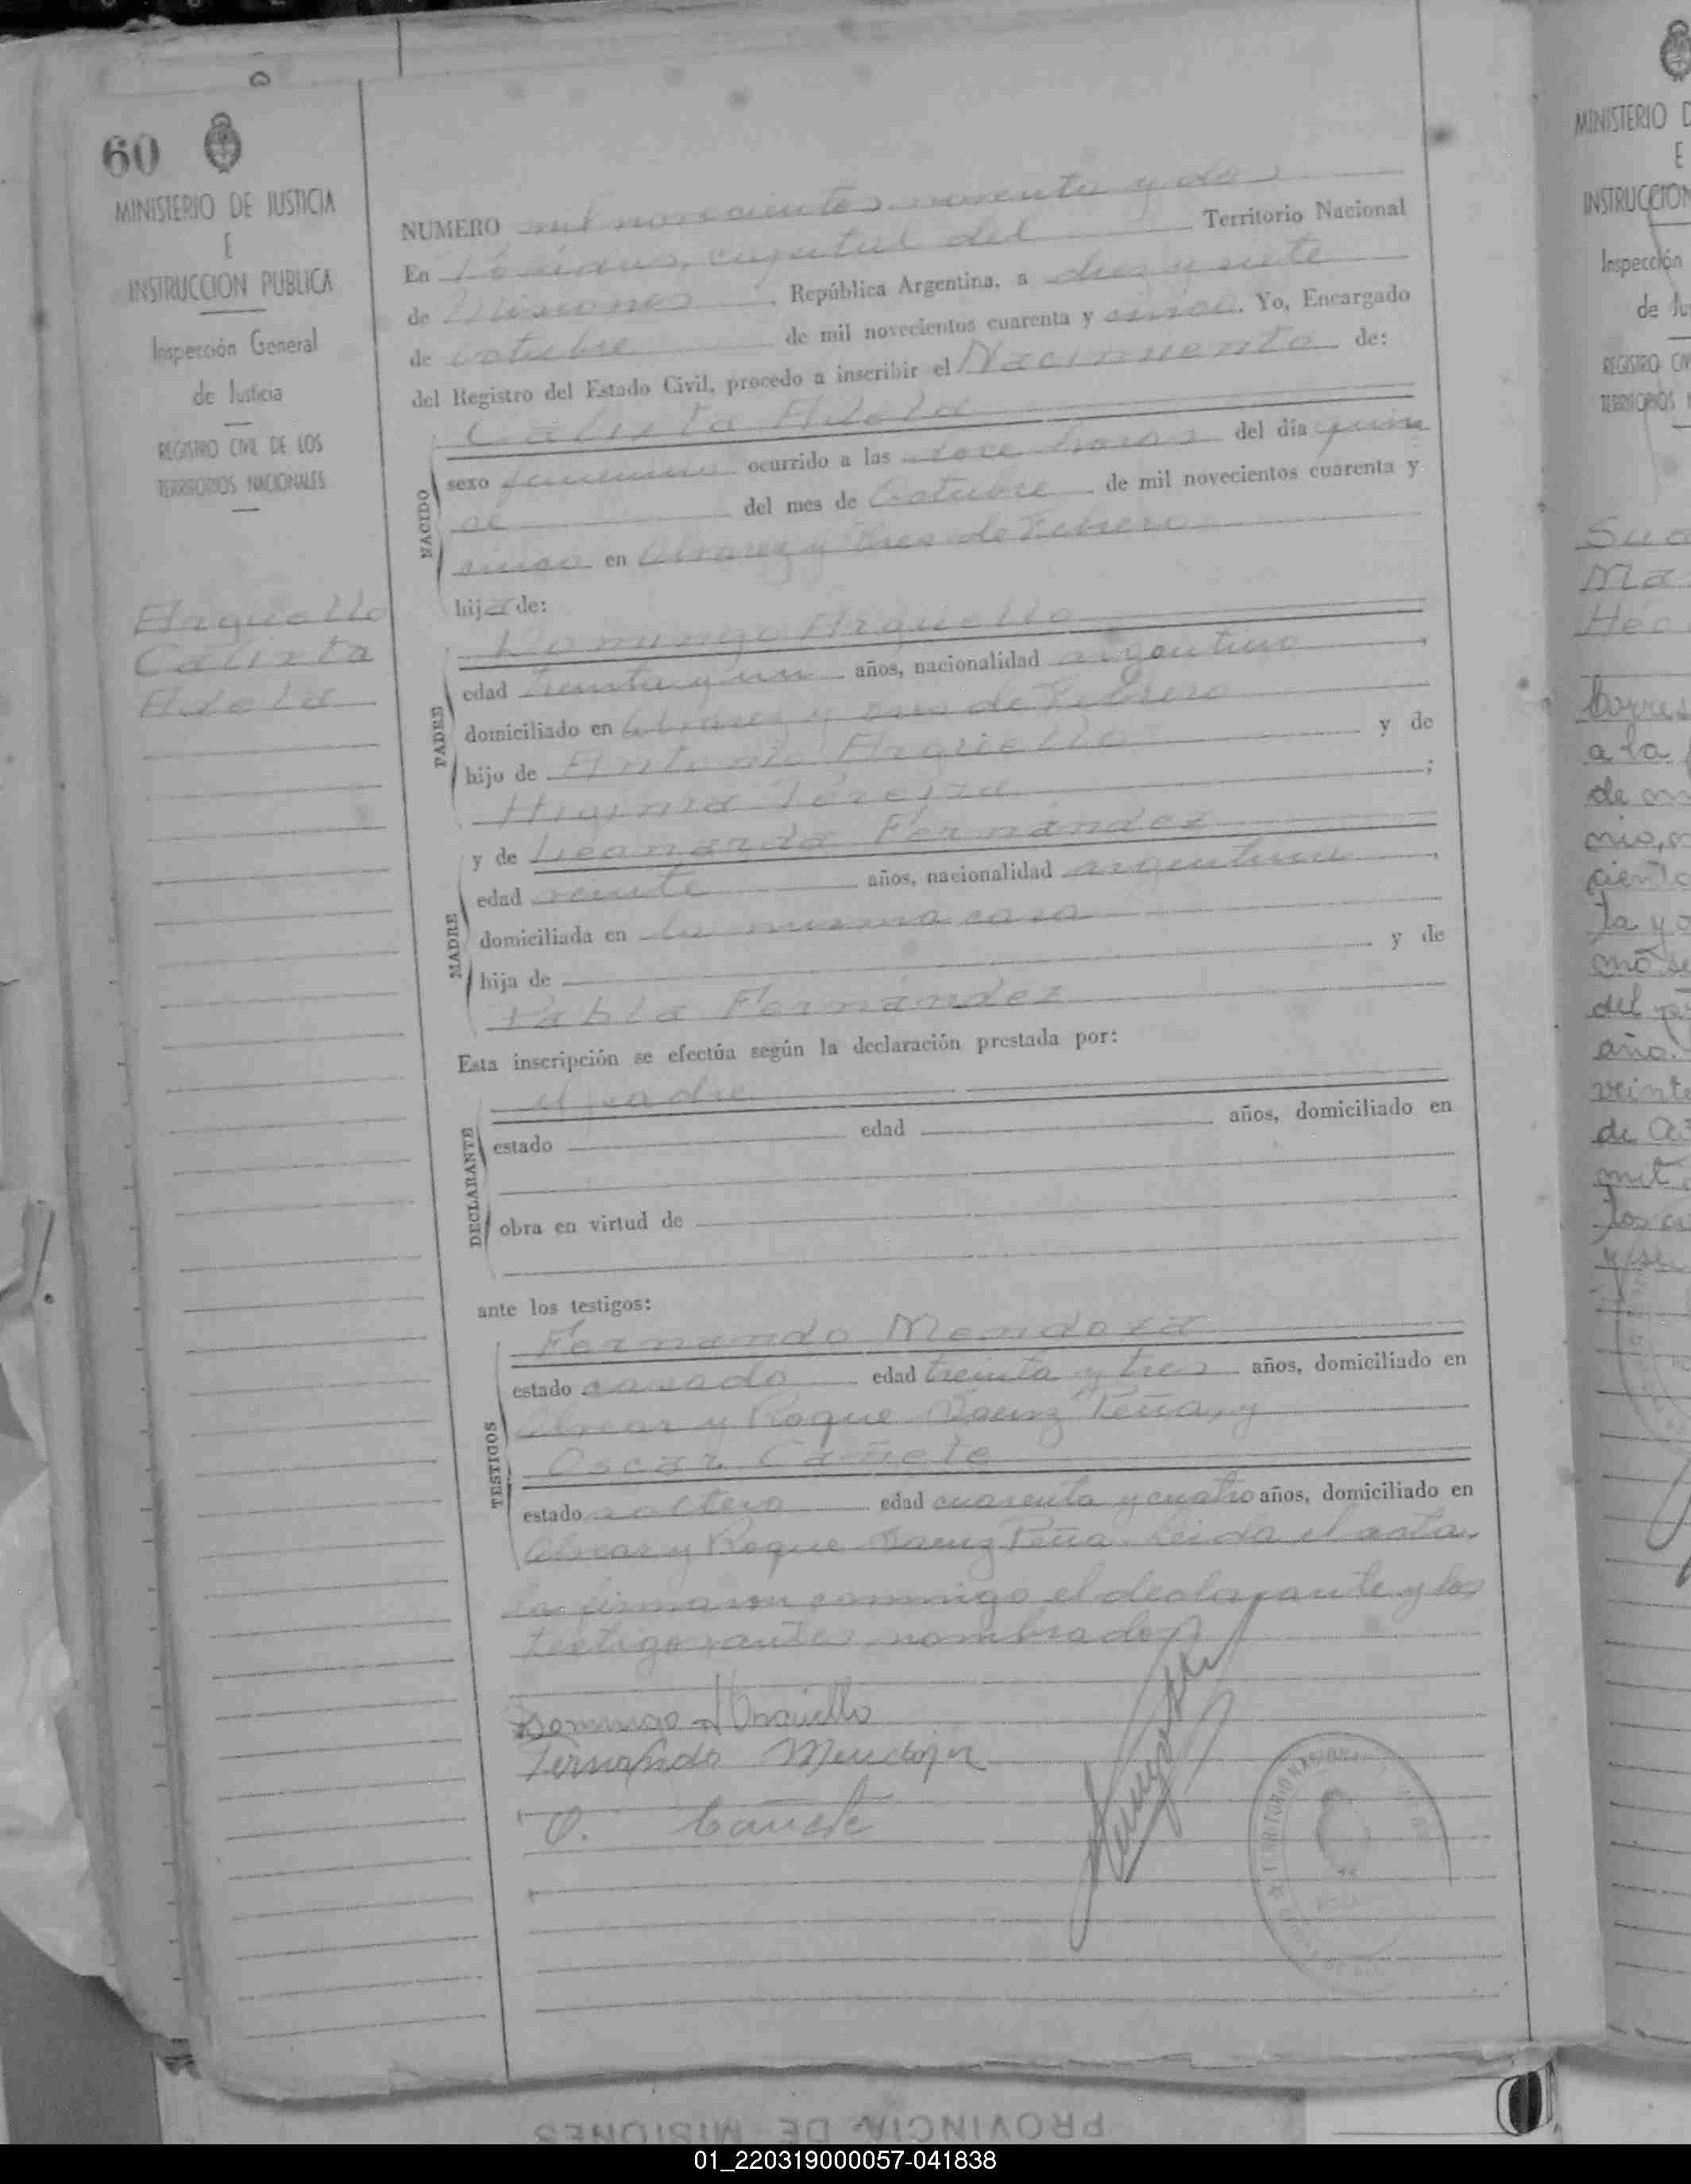 60
MINISTERIO DE JUSTICIA
E
INSTRUCCION PUBLICA
Inspección General
de Justicia
REGISTRO CIVIL DE LOS
TERRITORIOS NACIONALES
Arguello
Calixta
Adela
NUMERO mil novecientos noventa y dos
En Posadas, capital del Territorio Nacional
de Misiones, República Argentina, a diez y siete
de octubre de mil novecientos cuarenta y cinco. Yo, Encargado
del Registro del Estado Civil, procedo a inscribir el Nacimiento de:
NACIDO
Calixta Adela
sexo femenino ocurrido a las doce horas del día quin
ce del mes de Octubre de mil novecientos cuarenta y
cinco en Alvarez y tres de Febrero
hija de:
PADRE
Domingo Arguello
edad treinta y un años, nacionalidad argentino,
domiciliado en Alvarez y tres de Febrero
hijo de Antonio Arguello y de
Higinia Pereira;
MADRE
y de Leonarda Fernández
edad veinte años, nacionalidad argentina,
domiciliada en la misma casa
hija de y de
Pabla Fernández
Esta inscripción se efectúa según la declaración prestada por:
DECLARANTE
el padre
estado edad años, domiciliado en
obra en virtud de
ante los testigos:
TESTIGOS
Fernando Mendoza
estado casado edad treinta y tres años, domiciliado en
Alvear y Roque Saenz Peña, y
Oscar Cañete
estado soltero edad cuarenta y cuatro años, domiciliado en
Alvear y Roque Saenz Peña. Leida el acta,
la firmaron conmigo el declarante y los
testigos antes nombrados
Domingo Arguello
Fernando Mendoza
O. Cañete
MINISTERIO
E
INSTRUCCION
Inspección
de
REGISTRO
PROVINCIA DE MISIONES
01_220319000057-041838